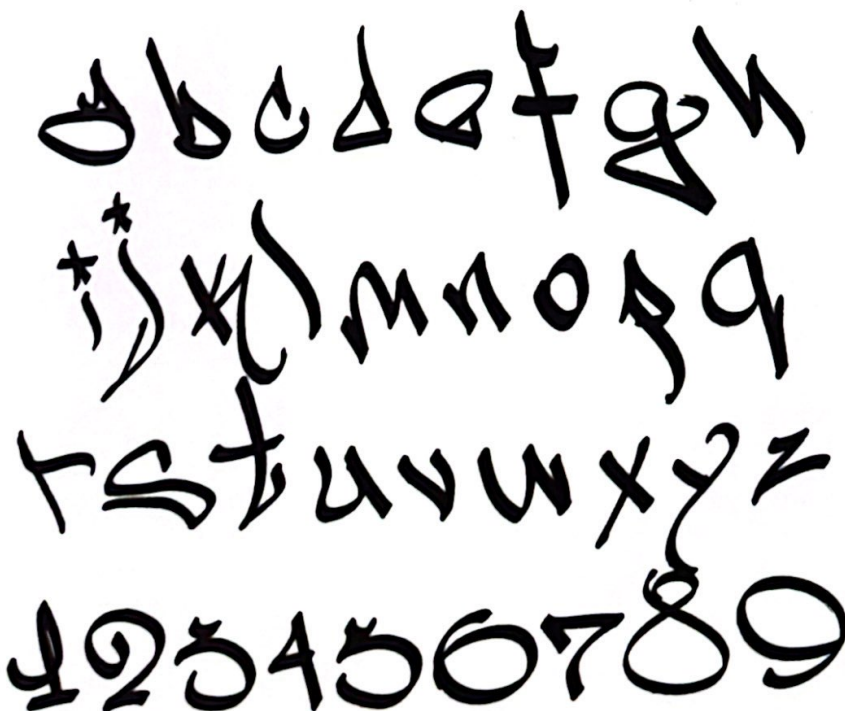 a b c d e f g h
i j k l m n o p q
r s t u v w x y z
1 2 3 4 5 6 7 8 9